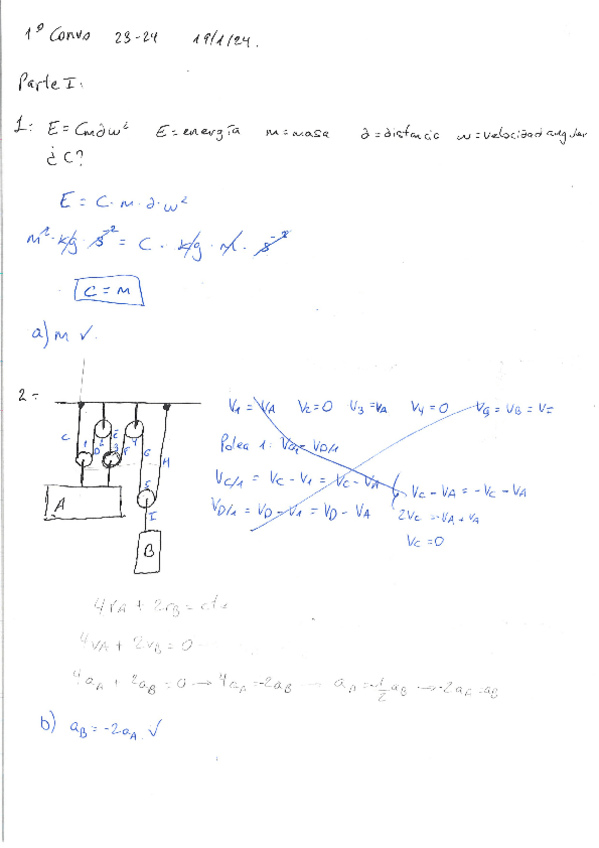 1º Convo 23-24 19/1/24.
Parte I:
1: E = Cm∂w² E = energía m = masa ∂ = distancia w = velocidad angular
¿C?
E = C · m · ∂ · w²
m² · kg · s⁻² = C · kg · m · s⁻²
C = m
a) m ✓
2=
V₁ = VA V₂ = 0 V₃ = VA V₄ = 0 V₅ = VB = VI
Polea 1: VC/1 = VD/1
VC/1 = VC - V₁ = VC - VA
VD/1 = VD - V₁ = VD - VA
VC - VA = -VC - VA
2VC = -VA + VA
VC = 0
C 1 D 2 E 3 F 4 G H 5 I
A
B
4rA + 2rB = cte
4vA + 2vB = 0
4aA + 2aB = 0 → 4aA = -2aB → aA = -1/2 aB → -2aA = aB
b) aB = -2aA ✓